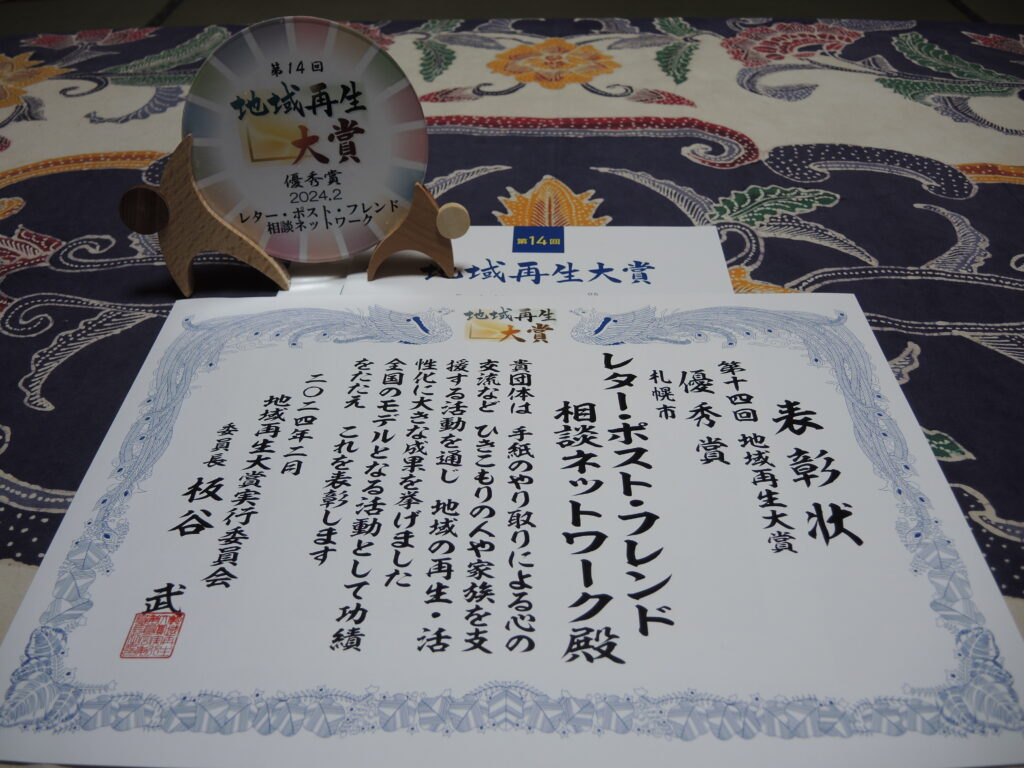 第14回
地域再生
大賞
優秀賞
2024.2
レター・ポスト・フレンド
相談ネットワーク
第14回
地域再生大賞
地域再生
大賞
表彰状
第十四回 地域再生大賞
優秀賞
札幌市
レター・ポスト・フレンド
相談ネットワーク殿
貴団体は 手紙のやり取りによる心の
交流など ひきこもりの人や家族を支
援する活動を通し 地域の再生・活
性化に大きな成果を挙げました
全国のモデルとなる活動として功績
をたたえ これを表彰します
二〇二四年二月
地域再生大賞実行委員会
委員長 板谷 武